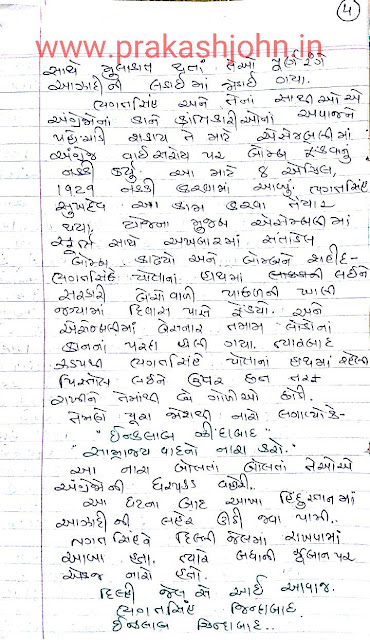 4
www.prakashjohn.in
સાથે મુલાકાત થતાં તેઓ પૂર્ણ રંગે
આઝાદીની લડાઈમાં જોડાઈ ગયા.
ભગતસિંહ અને તેના સાથીઓએ
અંગ્રેજોના કાને ક્રાંતિકારીઓનો અવાજને
પહોંચાડી શકાય તે માટે એસેમ્બલીમાં
અંગ્રેજ વાઈસરોય પર બોમ્બ ફેંકવાનું
નક્કી કર્યું. આ માટે 8 એપ્રિલ,
1929 નક્કી કરવામાં આવ્યું. ભગતસિંહ
સુખદેવ આ કામ કરવા તૈયાર
થયા. યોજના મુજબ એસેમ્બલીમાં
સ્ફૂર્તિ સાથે અખબારમાં સંતાડેલ
બોમ્બ કાઢ્યો અને બોમ્બને શહીદ-
ભગતસિંહે પોતાના હાથમાં લઈને
સરકારી બેંચોવાળી પાછળની ખાલી
જગ્યામાં દિવાલ પાસે ફેંક્યો. અને
એસેમ્બલીમાં બેસનાર તમામ લોકોનાં
કાનનાં પરદા ખૂલી ગયા. ત્યારબાદ
ઝડપથી ભગતસિંહે પોતાનાં હાથમાં રહેલી
પિસ્તોલ લઈને ઉપર છત તરફ
રાખીને તેમાંથી બે ગોળીઓ છોડી.
તેમણે પૂરા જોશથી નારો લગાવ્યો કે-
"ઈન્કલાબ ઝીંદાબાદ"
"સામ્રાજ્યવાદનો નાશ કરો."
આ નારા બોલતા બોલતા તેઓએ
અંગ્રેજોની ધરપકડ વહોરી.
આ ઘટના બાદ આખા હિંદુસ્તાનમાં
આઝાદીની લહેર ઊઠી જવા પામી.
ભગતસિંહને દિલ્હી જેલમાં રાખવામાં
આવ્યા હતા. ત્યારે બધાની જુબાન પર
એકજ નારો હતો.
દિલ્હી જેલ સે આઈ આવાજ.
ભગતસિંહ જિન્દાબાદ
ઈન્કલાબ જિન્દાબાદ..